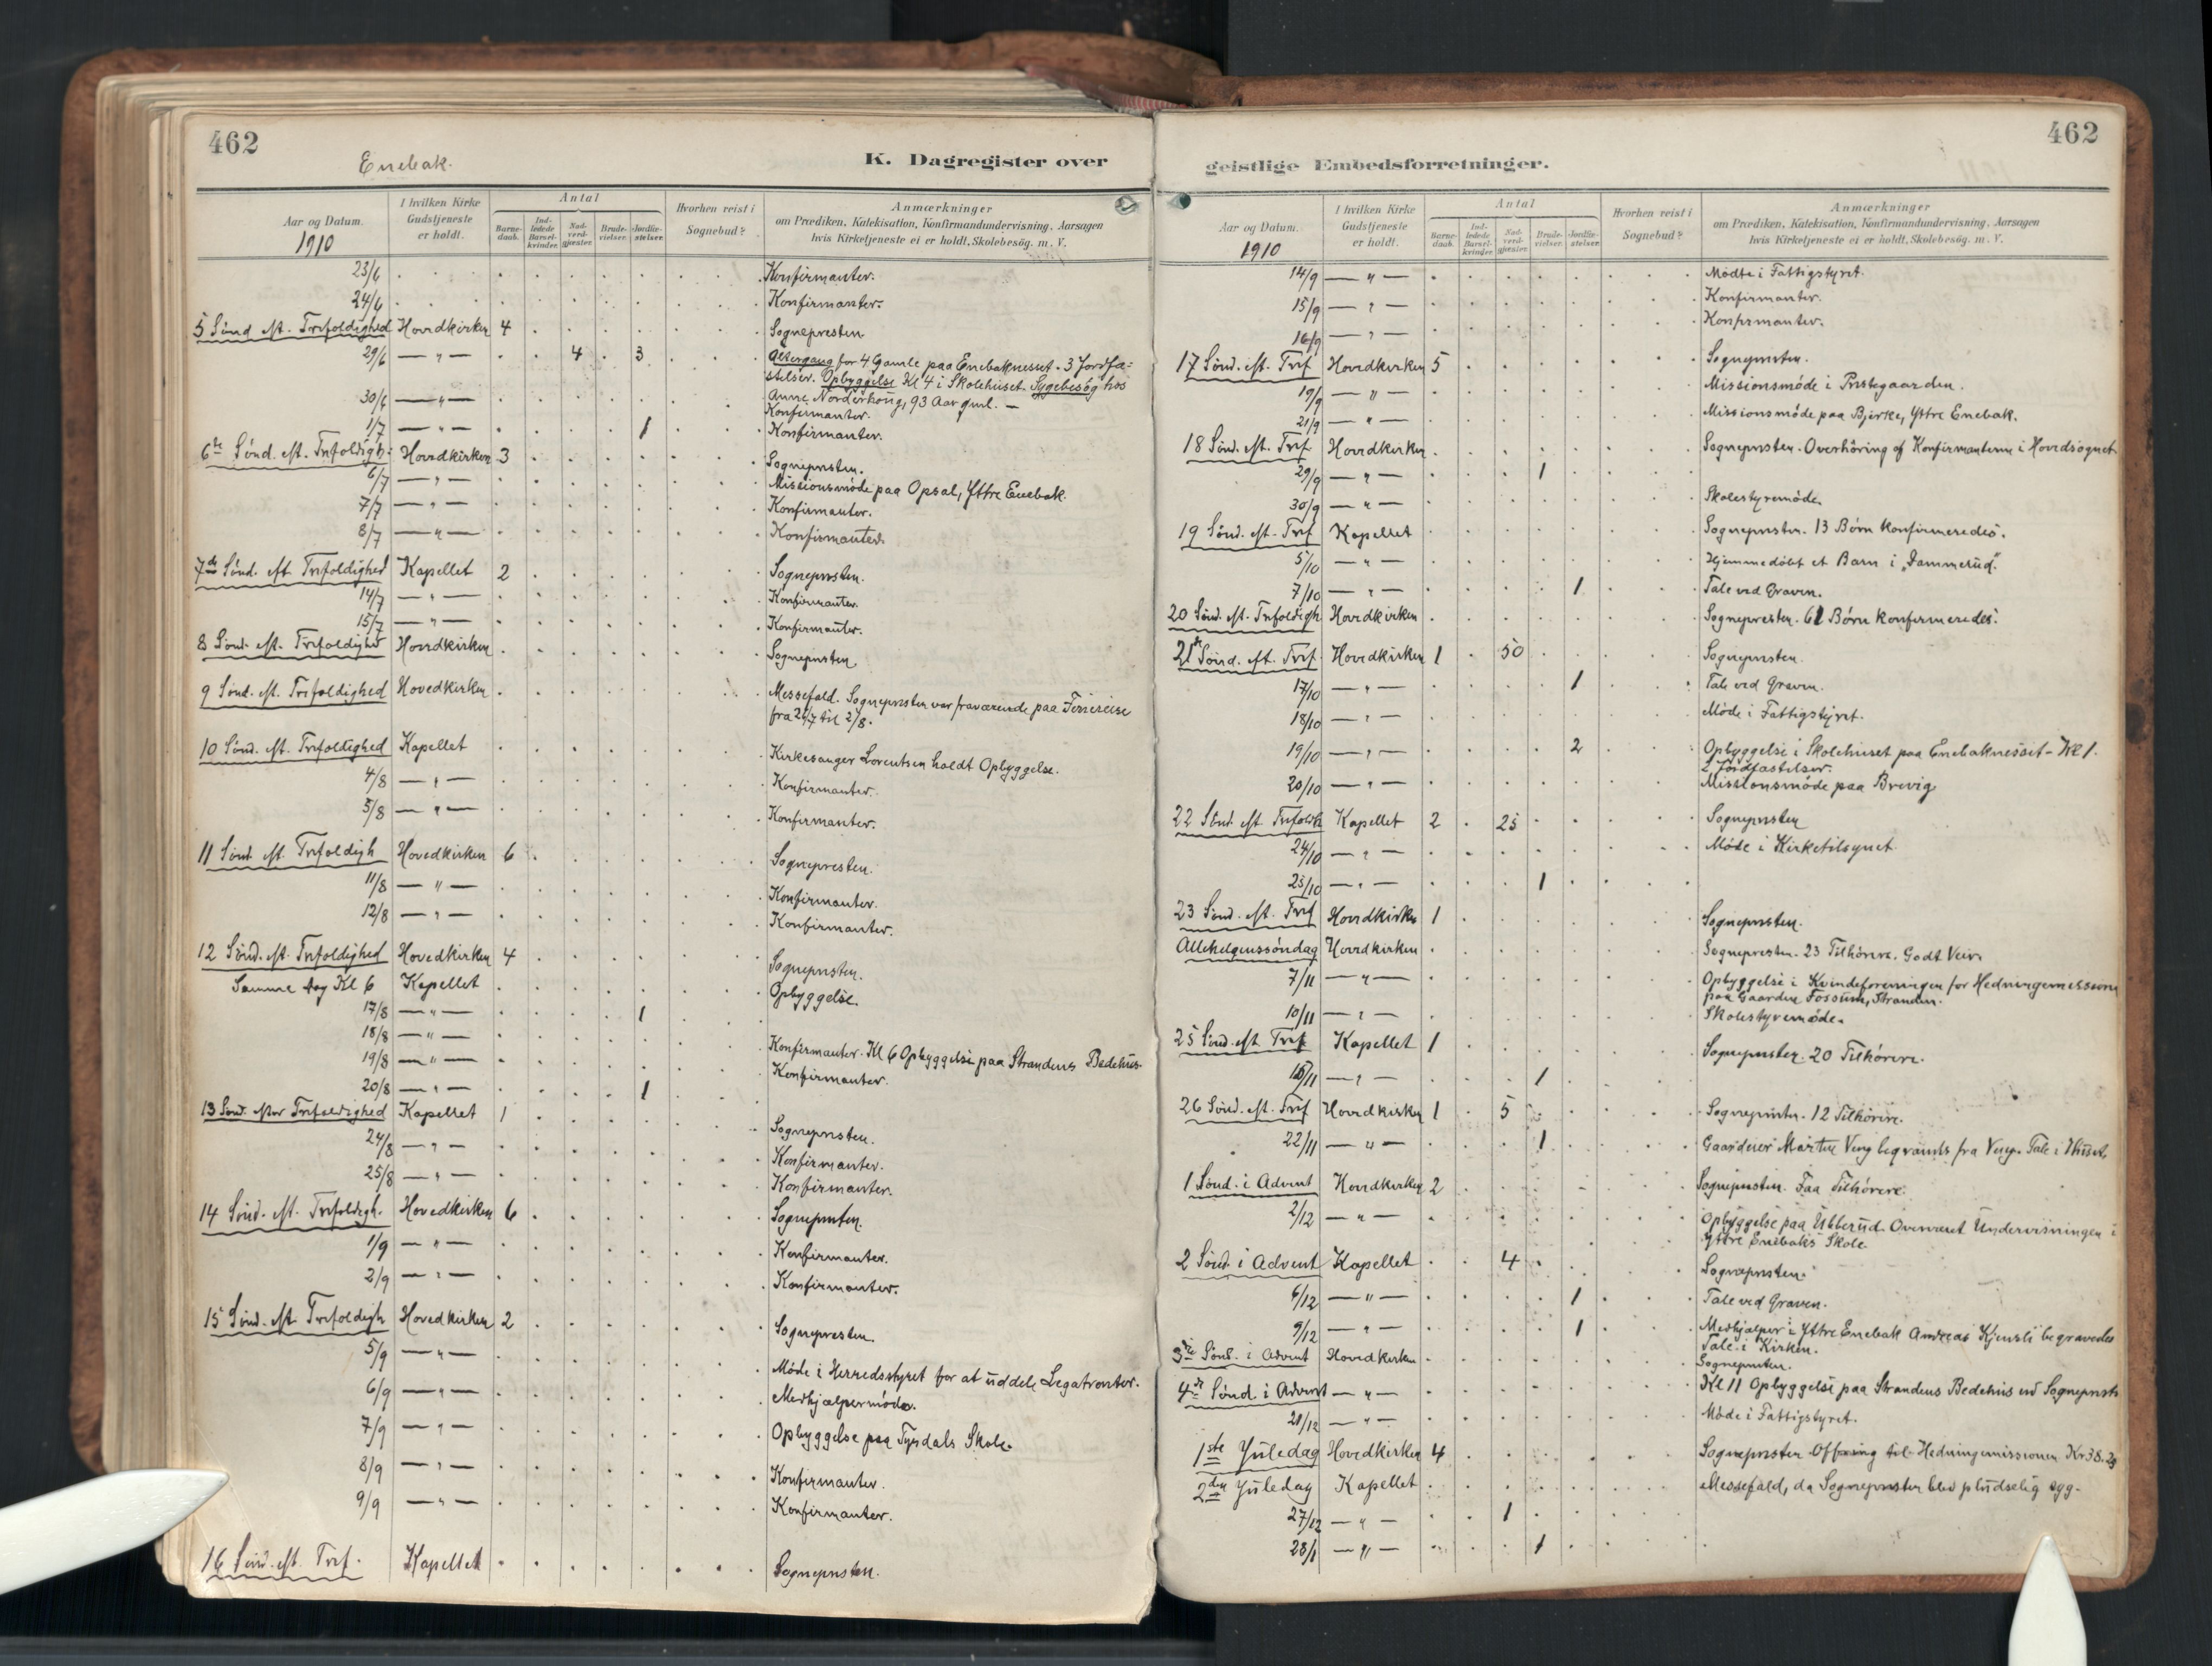 462
Enebak.
K. Dagregister over
Aar og Datum.
1910
I hvilken Kirke Gudstjeneste er holdt.
Antal
Barnedaab.
Indledede Barselkvinder.
Nadverdgjester.
Brudevielser.
Jordfæstelser.
Hvorhen reist i Sognebud?
Anmærkninger
om Prædiken, Katekisation, Konfirmandundervisning, Aarsagen
hvis Kirketjeneste ei er holdt, Skolebesøg. m. V.
23/6 Konfirmanter.
24/6 Konfirmanter.
5 Sönd eft. Trefoldighed Hovedkirken 4 Sognepresten
29/6 — " — 4 3 Altergang for 4 Gamle paa Enebaknesset. 3 Jordfæ-
stelser. Opbyggelse Kl 4 i Skolehuset. Sygebesög hos
Anne Norderhoug, 93 Aar gml. —
30/6 — " — Konfirmanter.
1/7 — " — 1 Konfirmanter.
6te Sönd. eft. Trefoldigh. Hovedkirken 3 Sognepresten.
6/7 — " — Missionsmöde paa Opsal, Ytre Enebak.
7/7 — " — Konfirmanter.
8/7 — " — Konfirmanter.
7de Sönd. eft. Trefoldighed Kapellet 2 Sognepresten.
14/7 — " — Konfirmanter.
15/7 — " — Konfirmanter.
8 Sönd. eft. Trefoldighed Hovedkirken Sognepresten.
9 Sönd. eft. Trefoldighed Hovedkirken Messefald. Sognepresten var fraværende paa Feriereise
fra 24/7 til 2/8.
10 Sönd. eft. Trefoldighed Kapellet Kirkesanger Lorentsen holdt Opbyggelse.
4/8 — " — Konfirmanter.
5/8 — " — Konfirmanter.
11 Sönd eft. Trefoldigh Hovedkirken 6 Sognepresten.
11/8 — " — Konfirmanter.
12/8 — " — Konfirmanter.
12 Sönd. eft. Trefoldighed Hovedkirken 4 Sognepresten.
Samme Dag Kl 6 Kapellet Opbyggelse.
17/8 — " — 1
18/8 — " — Konfirmanter. Kl 6 Opbyggelse paa Strandens Bedehus.
19/8 — " — Konfirmanter.
20/8 — " — 1
13 Sönd. efter Trefoldighed Kapellet 1 Sognepresten.
24/8 — " — Konfirmanter.
25/8 — " — Konfirmanter.
14 Sönd. eft. Trefoldigh. Hovedkirken 6 Sognepresten.
1/9 — " — Konfirmanter.
2/9 — " — Konfirmanter.
15 Sönd. eft. Trefoldigh Hovedkirken 2 Sognepresten.
5/9 — " — Möde i Herredsstyret for at uddele Legatrenter.
6/9 — " — Medhjælpermöde.
7/9 — " — Opbyggelse paa Tysdals Skole.
8/9 — " — Konfirmanter.
9/9 — " — Konfirmanter.
16 Sönd. eft. Tref. Kapellet Sognepresten.
462
geistlige Embedsforretninger.
Aar og Datum.
1910
I hvilken Kirke Gudstjeneste er holdt.
Antal
Barnedaab.
Indledede Barselkvinder.
Nadverdgjester.
Brudevielser.
Jordfæstelser.
Hvorhen reist i Sognebud?
Anmærkninger
om Prædiken, Katekisation, Konfirmandundervisning, Aarsagen
hvis Kirketjeneste ei er holdt, Skolebesøg. m. V.
14/9 — " — Mödte i Fattigstyret.
15/9 — " — Konfirmanter.
16/9 — " — Konfirmanter.
17 Sönd. eft. Tref Hovedkirken 5 Sognepresten.
19/9 — " — Missionsmöde i Prestegaarden.
21/9 — " — Missionsmöde paa Bjerke, Yttre Enebak.
18 Sönd. eft. Tref Hovedkirken Sognepresten. Overhöring af Konfirmanterne i Hovedsognet
29/9 — " — 1
30/9 — " — Skolestyremöde.
19 Sönd. eft. Tref Kapellet Sognepresten. 13 Börn konfirmeredes.
5/10 — " — Hjemmedöbt et Barn i „Dammerud".
7/10 — " — 1 Tale ved Graven.
20 Sönd. eft. Trefoldigh Hovedkirken Sognepresten. 61 Börn konfirmeredes.
21de Sönd. eft. Tref. Hovedkirken 1 50 Sognepresten.
17/10 — " — 1 Tale ved Graven.
18/10 — " — Möde i Fattigstyret.
19/10 — " — 2 Opbyggelse i Skolehuset paa Enebaknesset - Kl 1.
2 Jordfæstelser.
20/10 — " — Missionsmöde paa Brevig
22 Sönd eft Trefoldh Kapellet 2 25 Sognepresten
24/10 — " — Möde i Kirketilsynet.
25/10 — " — 1
23 Sönd. eft. Tref Hovedkirken 1 Sognepresten.
Allehelgenssöndag Hovedkirken Sognepresten. 23 Tilhörere. Godt Veir.
7/11 — " — Opbyggelse i Kvindeforeningen for Hedningemissionen
paa Gaarden Fossum, Stranden.
10/11 — " — Skolestyremöde.
25 Sönd eft Tref Kapellet 1 Sognepresten. 20 Tilhörere.
/11 — " — 1
26 Sönd. eft. Tref Hovedkirken 1 5 Sognepresten. 12 Tilhörere.
22/11 — " — 1 Gaardeier Martin Veng begraveds fra Veng. Tale i Huset.
1 Sönd. i Advent Hovedkirken 2 Sognepresten. Faa Tilhörere.
2/12 — " — Opbyggelse paa Ubberud. Overværet Undervisningen i
Yttre Enebaks Skole.
2 Sönd. i Advent Kapellet 4 Sognepresten.
6/12 — " — 1 Tale ved Graven.
9/12 — " — 1 Medhjælper i Yttre Enebak Andreas Kjensli begravedes
Tale i Kirken.
3die Sönd. i Advent Hovedkirken Sognepresten.
4de Sönd i Advent — " — Kl 11 Opbyggelse paa Strandens Bedehus ved Sognepresten
21/12 — " — Möde i Fattigstyret.
1ste Juledag Hovedkirken 4 Sognepresten Offring til Hedningemissionen Kr 38.23
2den Juledag Kapellet Messefald, da Sognepresten blev pludselig syg.
27/12 — " — 1
28/1 — " — 1